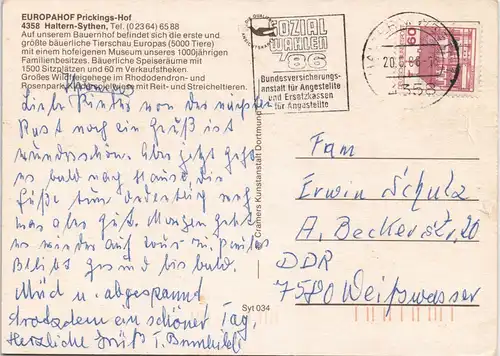 EUROPAHOF Prickings-Hof
4358 Haltern-Sythen, Tel. (02364) 6588
Auf unserem Bauernhof befindet sich die erste und
größte bäuerliche Tierschau Europas (5000 Tiere)
mit einem hofeigenen Museum unseres 1000jährigen
Familienbesitzes. Bäuerliche Speiseräume mit
1500 Sitzplätzen und 60 m Verkaufstheken.
Großes Wildfreigehege im Rhododendron- und
Rosenpark. mit Reit- und Streicheltieren.
Liebe Kinder von der
Rast noch ein Gruß ist
wunderschön. Aber jetzt geht
es bald nach Hause, die
Füße tun weh
was aber gut. Morgen geht
es wieder auf
Bleibt gesund bis bald.
Müd u. abgespannt
trotzdem ein schöner Tag,
Herzliche Grüße
Cramers Kunstanstalt Dortmund
Syt 034
SOZIAL
WAHLEN
'86
Bundesversicherungs-
anstalt für Angestellte
und Ersatzkassen
für Angestellte
4358
60
Fam
Erwin Schulz
A. Beckerstr. 20
DDR
7580 Weißwasser